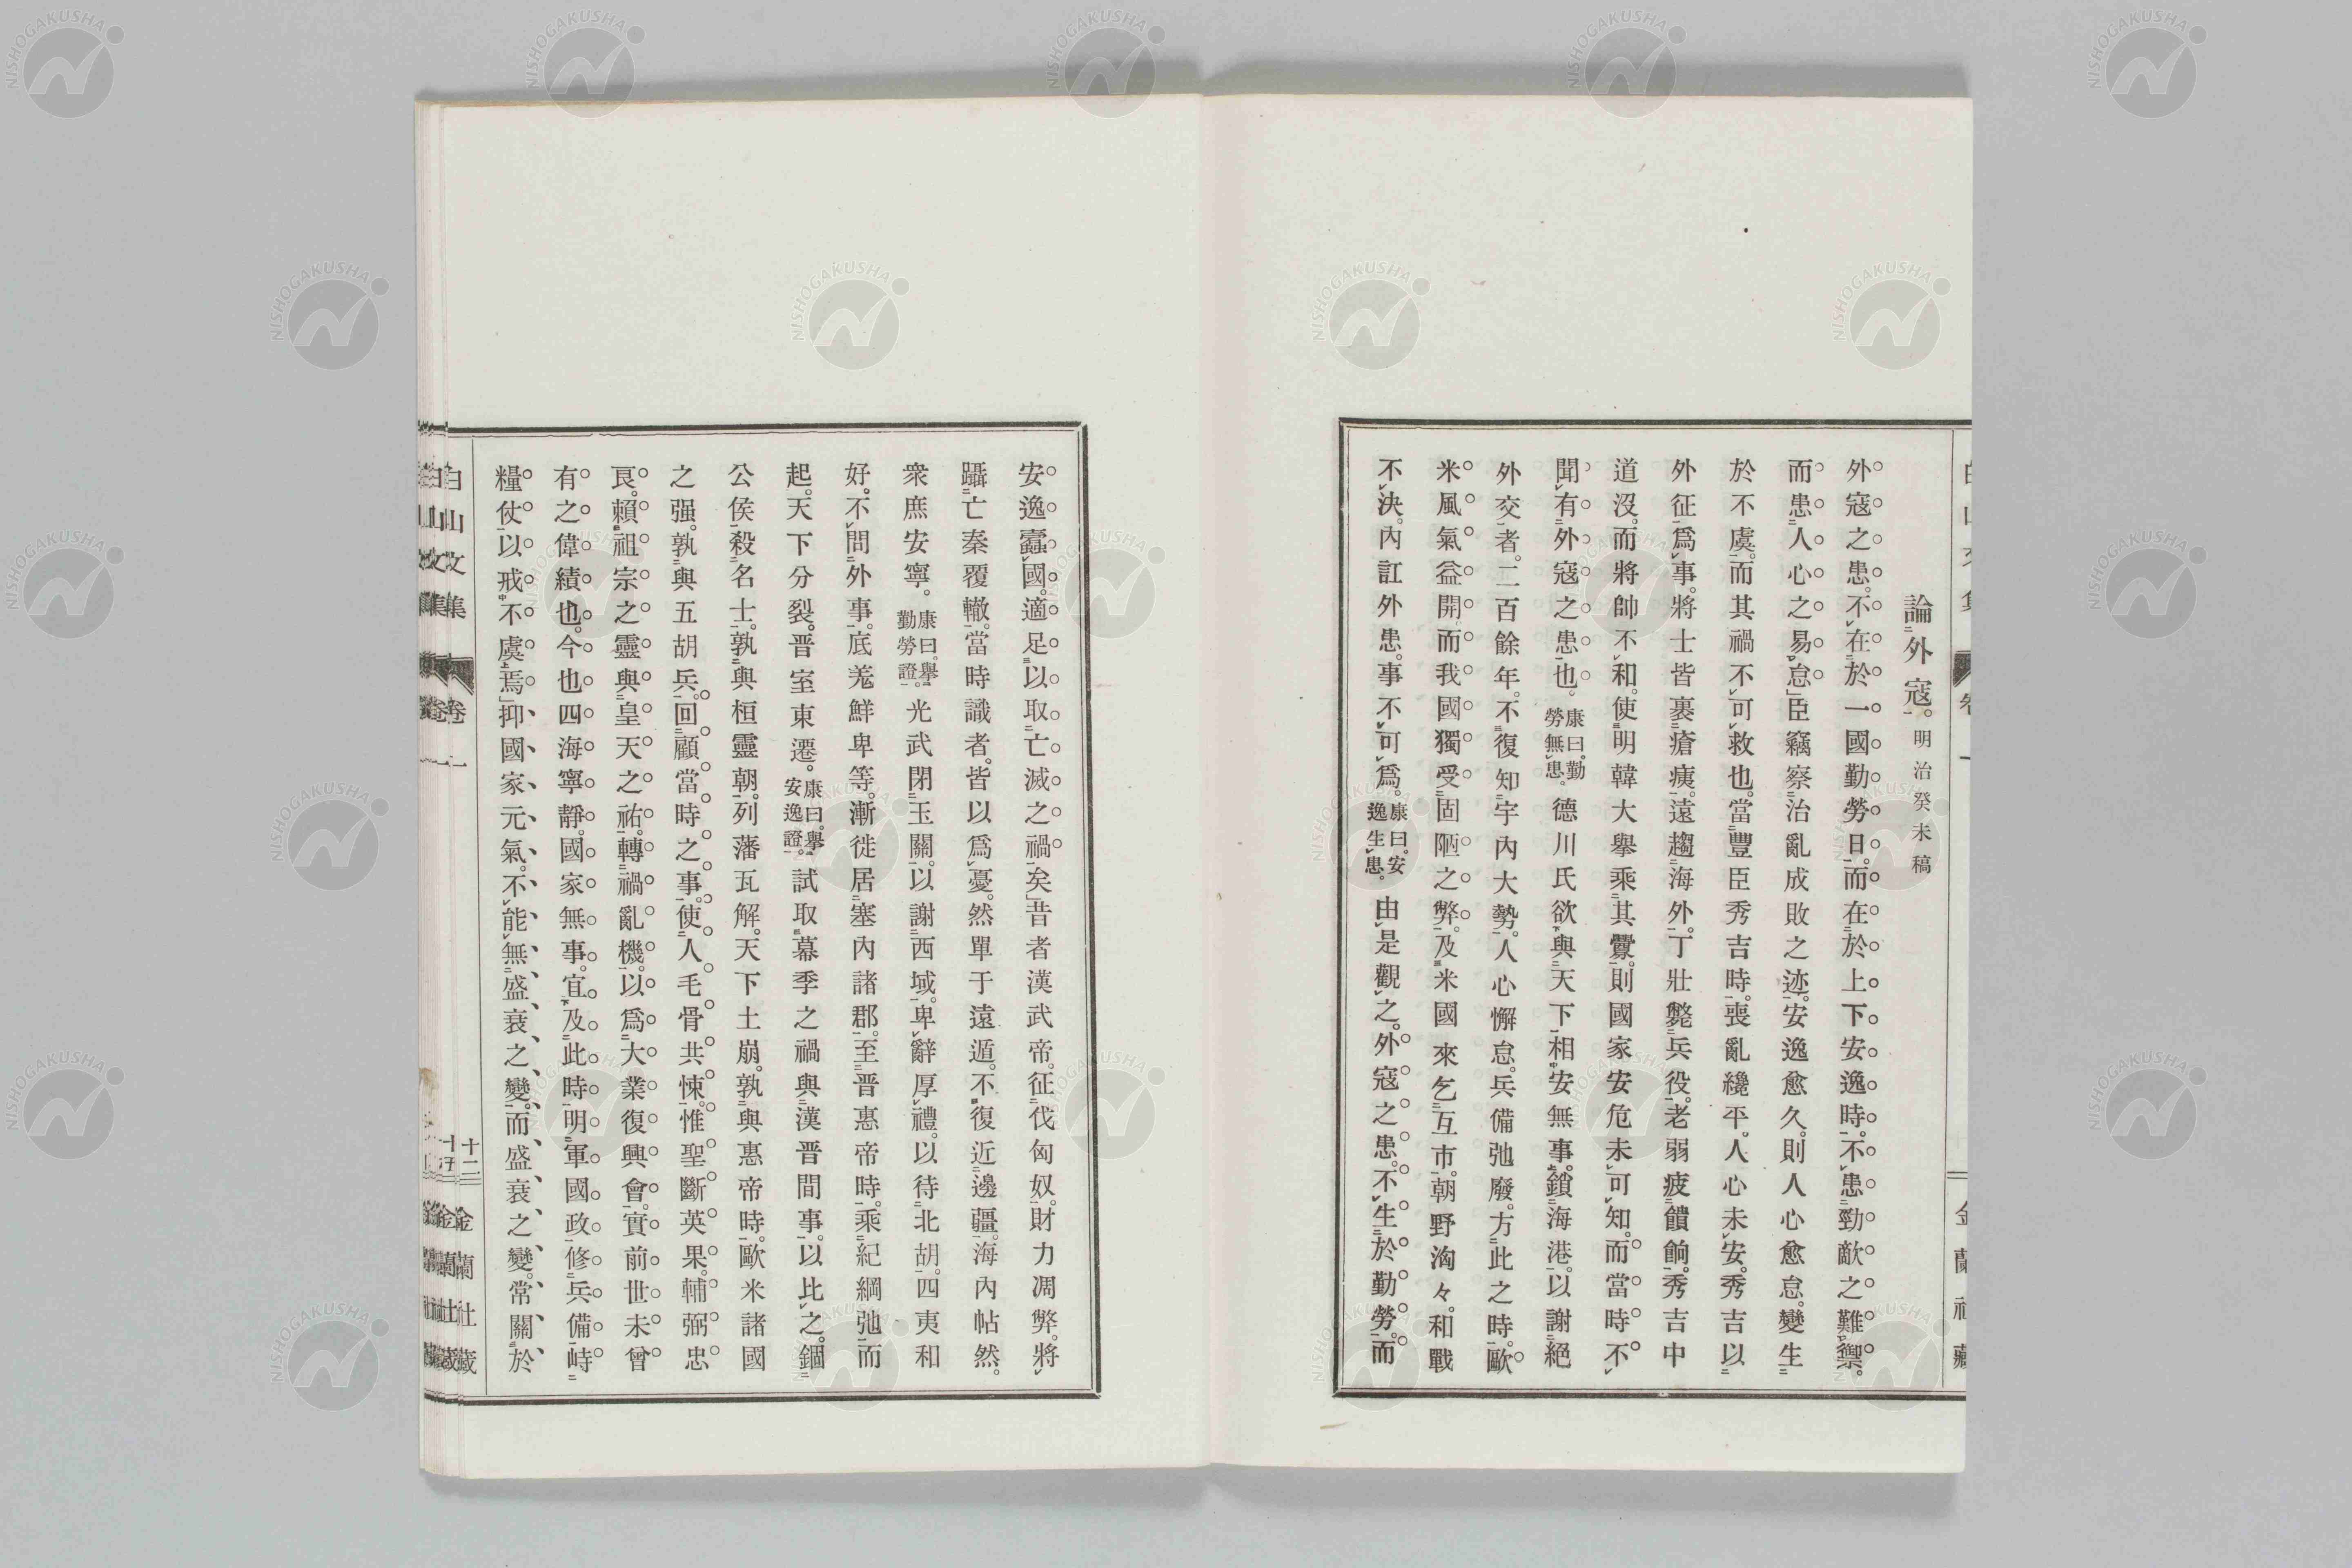 論外寇。明治癸未稿
外寇之患。不在於一國勤勞日。而在於上下安逸時。不患勁敵之難禦。
而患人心之易怠」臣竊察治亂成敗之迹。安逸愈久。則人心愈怠。變生
於不虞。而其禍不可救也。當豐臣秀吉時。喪亂纔平。人心未安。秀吉以
外征爲事。將士皆裹瘡痍。遠趨海外。丁壯斃兵役。老弱疲饋餉。秀吉中
道沒。而將帥不和。使明韓大擧乘其釁。則國家安危未可知。而當時不
聞有外寇之患也。康曰。勤勞無患。德川氏欲與天下相安無事。鎖海港。以謝絕
外交者。二百餘年。不復知宇內大勢。人心懈怠。兵備弛廢。方此之時。歐
米風氣益開。而我國獨受固陋之弊。及米國來乞互市。朝野洶々。和戰
不決。內訌外患。事不可爲。康曰。安逸生患。由是觀之。外寇之患。不生於勤勞。而
安逸蠹國。適足以取亡滅之禍矣」昔者漢武帝。征伐匈奴。財力凋弊。將
躡亡秦覆轍。當時識者。皆以爲憂。然單于遠遁。不復近邊疆。海內帖然。
衆庶安寧。康曰。擧勤勞證。光武閉玉關。以謝西域。卑辭厚禮。以待北胡。四夷和
好。不問外事。底羗鮮卑等。漸徙居塞內諸郡。至晋惠帝時。乘紀綱弛。而
起。天下分裂。晋室東遷。康曰。擧安逸證。試取幕季之禍。與漢晋間事。以比之。錮
公侯殺名士。孰與桓靈朝。列藩瓦解。天下土崩。孰與惠帝時。歐米諸國
之强。孰與五胡兵。回顧當時之事。使人毛骨共悚。惟聖斷英果。輔弼忠
良。賴祖宗之靈與皇天之祐。轉禍亂機。以爲大業復興會。實前世未曾
有之偉績也。今也四海寧靜。國家無事。宜及此時明軍國政。修兵備。峙
糧仗。以戒不虞焉」抑國家元氣。不能無盛衰之變。而盛衰之變。常關於
白山文集 卷一 十二 金蘭社藏